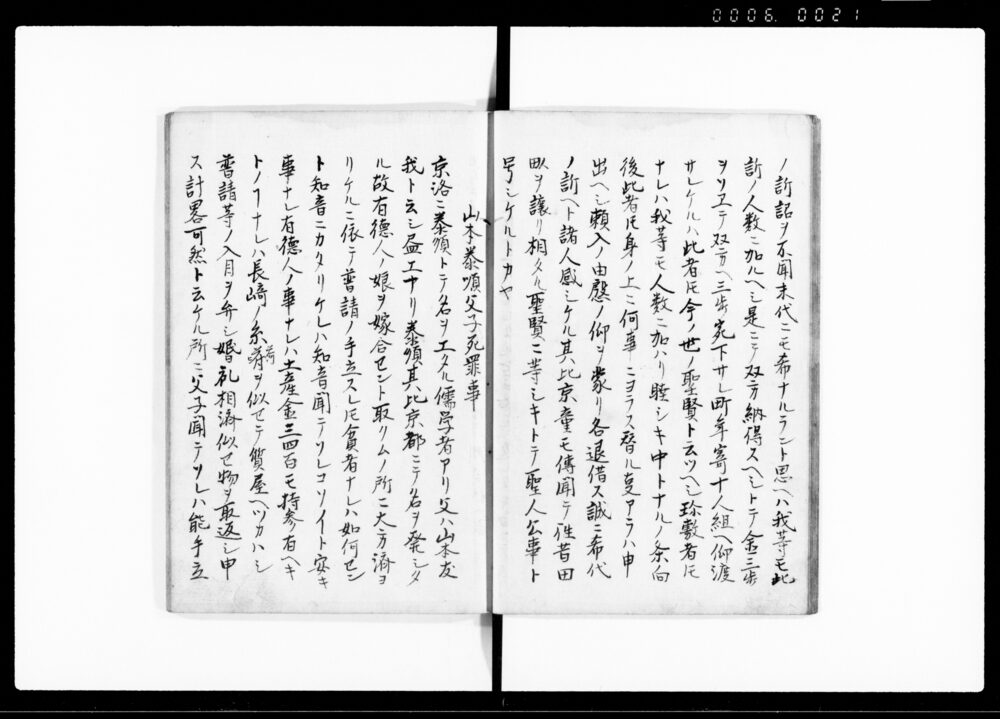 0006. 0021
ノ訴詔ヲ不聞末代ニモ希ナルラント思ヘハ我等モ此
訴ノ人数ニ加ルヘシ是ニテ双方納得スヘシトテ金三歩
ヲソヱテ双方ヘ三歩宛下サレ町年寄十人組ヘ仰渡
サレケルハ此者𪜈今ノ世ノ聖賢ト云ツヘシ珍敷者𪜈
ナレハ我等モ人数ニ加ハリ睦シキ中トナルノ条向
後此者𪜈身ノ上ニ何事ニヨラス替ル叓アラハ申
出ヘシ頼入ノ由慇ノ仰ヲ蒙リ各退借ス誠ニ希代
ノ訴ヘト諸人感シケル其比京童モ傳聞テ徃昔田
畝ヲ譲リ相タル聖賢ニ等シキトテ聖人公事ト
号シケルトカヤ
山本泰順父子死罪事
京洛ニ泰順トテ名ヲエタル儒学者アリ父ハ山本友
我ト云シ盃エヤリ泰順其比京都ニテ名ヲ発シタ
ル故有德人ノ娘ヲ嫁合セント取リムノ所ニ大方済ヨ
リケルニ依テ普請ノ手立スレ𪜈貧者ナレハ如何セン
ト知音ニカタリケレハ知音聞テソレコソイト安キ
事ナレ有德人ノ事ナレハ土産金三四百モ持参有ヘキ
トノヿナレハ長崎ノ糸荷ヲ似セテ質屋ヘツカハシ
普請等ノ入目ヲ弁シ婚礼相済似セ物ヲ取返シ申
ス計畧可然ト云ケル所ニ父子聞テソレハ能手立